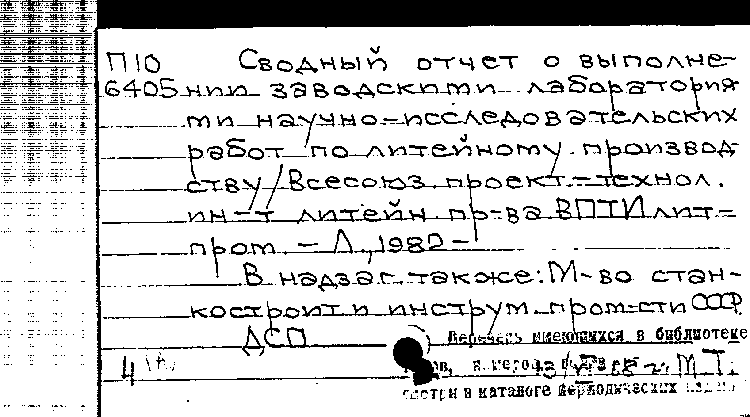 П10 Сводный отчет о выполне-
6405 нии заводскими лаборатория
ми научно-исследовательских
работ по литейному производ
ству / Всесоюз. проект.-технол.
ин-т литейн. пр-ва ВПТИлит-
пром. - Л., 1982 -
В надзаг. также: М-во стан-
костроит и инструм. пром-сти СССР.
ДСП
Перечень имеющихся в библиотеке
4
смотри в каталоге периодических